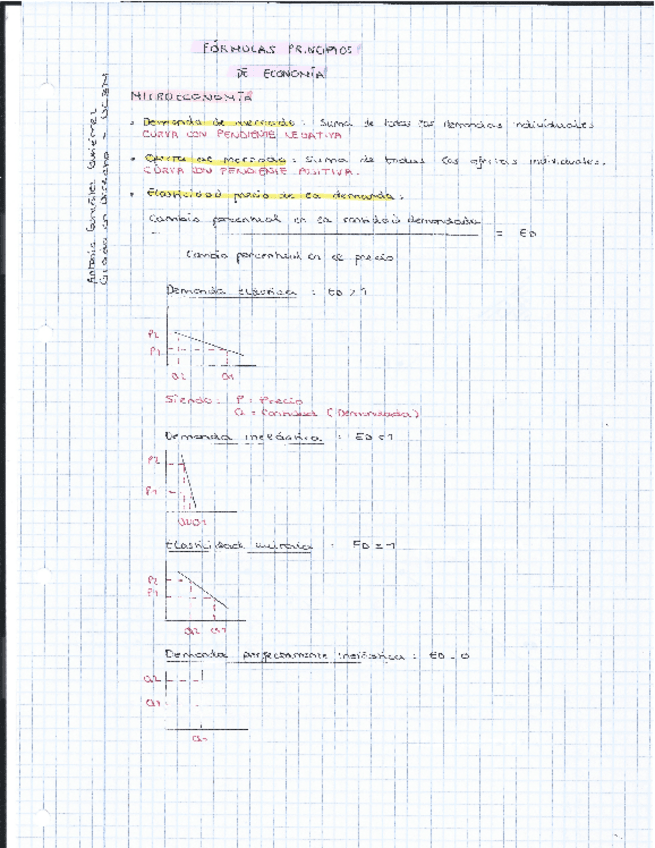 FÓRMULAS PRINCIPIOS
DE ECONOMÍA
MICROECONOMÍA
• Demanda de mercado: Suma de todas las demandas individuales
CURVA CON PENDIENTE NEGATIVA
• Oferta de mercado: Suma de todas las ofertas individuales.
CURVA CON PENDIENTE POSITIVA.
• Elasticidad precio de la demanda:
Cambio porcentual en la cantidad demandada
= ED
Cambio porcentual en el precio
Demanda elástica : ED > 1
P2
P1
Q2 Q1
Siendo: P = Precio
Q = Cantidad (Demandada)
Demanda inelástica : ED < 1
P2
P1
Q2 Q1
Elasticidad unitaria : ED = 1
P2
P1
Q2 Q1
Demanda perfectamente inelástica : ED = 0
Q2
Q1
Q1
Antonio González Gutiérrez